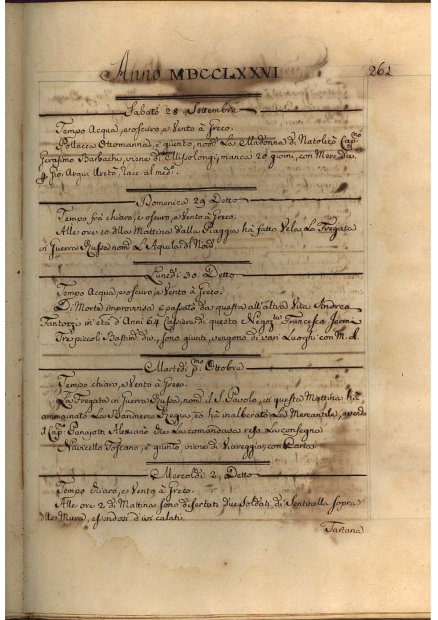 Anno MDCCLXXVI 261
Sabato 28 Settembre
Tempo Acqua, e oscuro, e Vento à Greco.
Pollacca Ottomanna, è giunto, nom.ta La Madonna di Natolicò Cap.no
Gerasimo Barbachi, viene di Missolongi, manca 20 giorni, con Merc.
Domenica 29 Detto
Tempo frà chiaro, e oscuro, e Vento à Greco.
Alle ore 10 della Mattina dalla Piaggia hà fatto Vela La Fregata
in Guerra Russa nom.ta L'Aquila di Nord
Lunedi 30 Detto
Tempo Acqua, e oscuro, e Vento à Greco.
Di Morte improvisa è passato da questa all'altra Vita Andrea
Fantozzi in età d'Anni 64 Cassiere di questo Negoz.te Francesco
Tre piccoli Bastim.ti sono giunti, vengono di vari Luoghi con M.
Martedi p.mo Ottobre
Tempo chiaro, e Vento à Greco.
La Fregata in Guerra Russa, nom.ta il S. Pavolo, in questa Mattina ha
ammainato La Bandiera Regia, ed hà inalberato La Mercantile, avendo
il Cap.no Panajotti Alexiano che La comandava reso La consegna
Navicello Toscano, è giunto, viene di Viareggio, con Carta.
Mercoldi 2 Detto
Tempo chiaro, e Vento à Greco.
Alle ore 2 di Mattina sono disertati due Soldati di Sentinella sopra
delle Mura, essendosi di calati.
Tartana